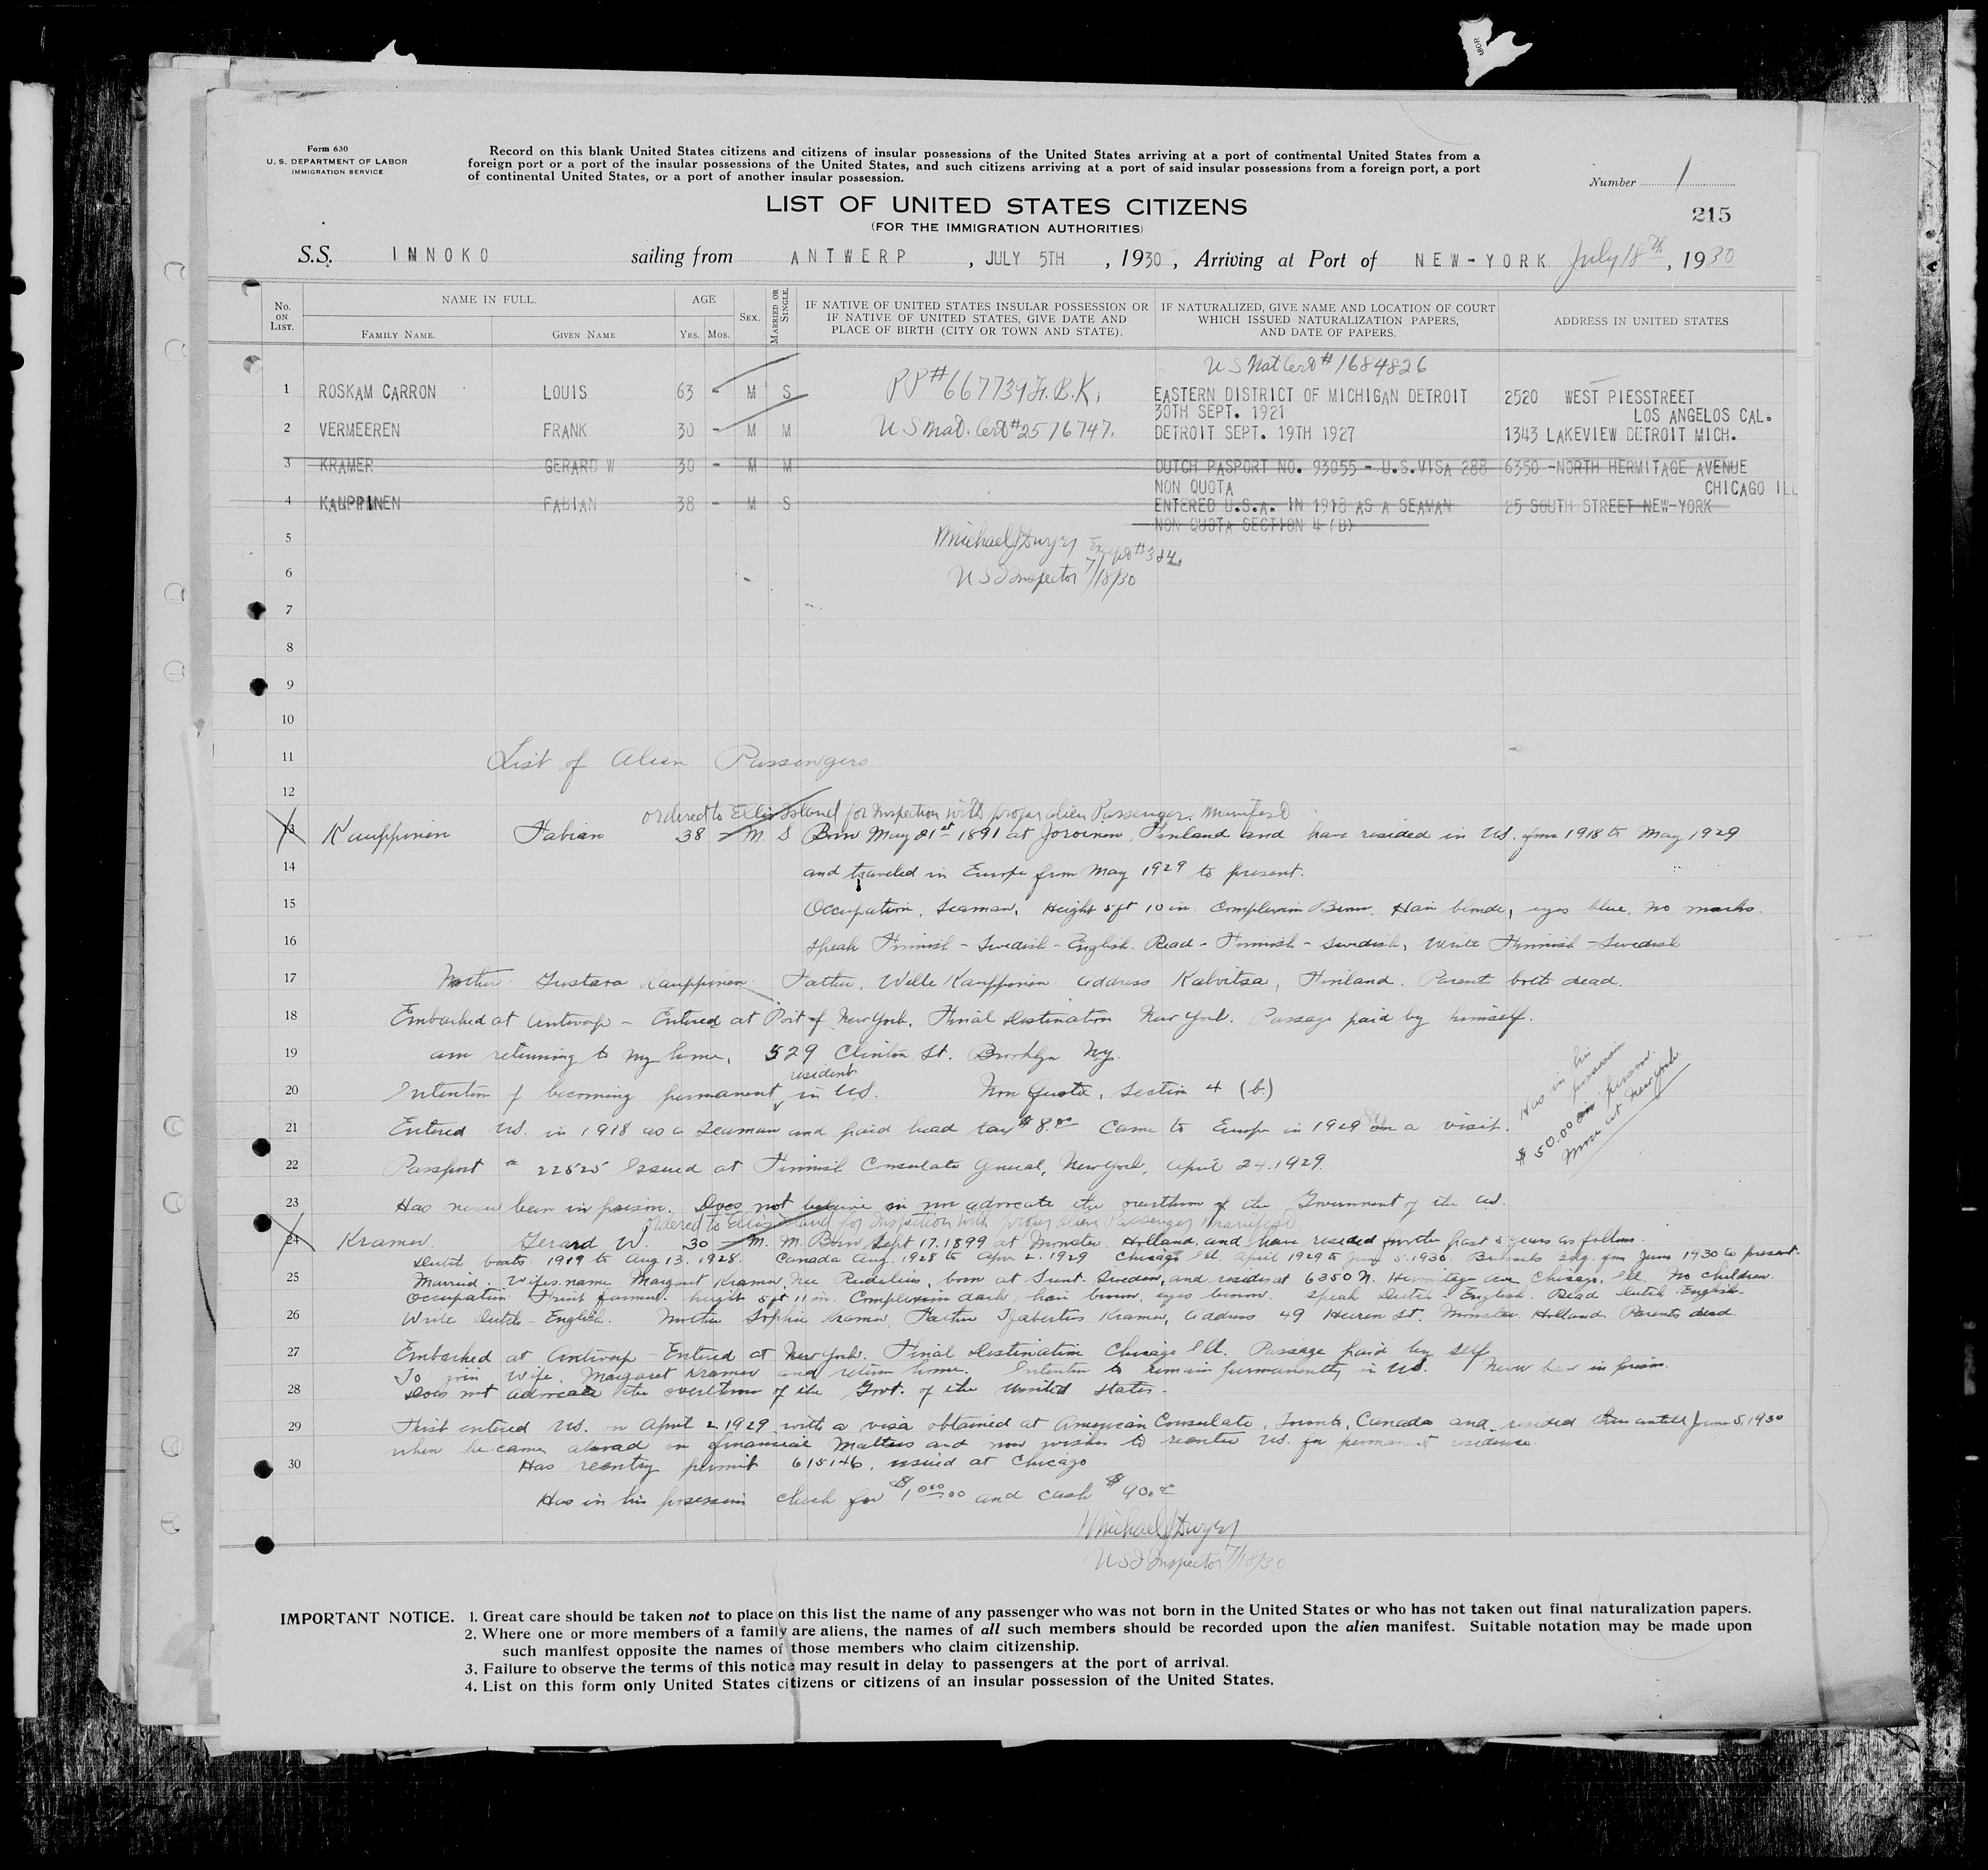 Form 630
U. S. DEPARTMENT OF LABOR
IMMIGRATION SERVICE
Record on this blank United States citizens and citizens of insular possessions of the United States arriving at a port of continental United States from a
foreign port or a port of the insular possessions of the United States, and such citizens arriving at a port of said insular possessions from a foreign port, a port
of continental United States, or a port of another insular possession.
Number 1
215
LIST OF UNITED STATES CITIZENS
(FOR THE IMMIGRATION AUTHORITIES)
S.S. INNOKO sailing from ANTWERP, JULY 5TH, 1930, Arriving at Port of NEW-YORK July 18th, 1930
No. ON LIST.
NAME IN FULL.
FAMILY NAME.
GIVEN NAME
AGE
YRS. MOS.
SEX.
MARRIED OR SINGLE.
IF NATIVE OF UNITED STATES INSULAR POSSESSION OR
IF NATIVE OF UNITED STATES, GIVE DATE AND
PLACE OF BIRTH (CITY OR TOWN AND STATE).
IF NATURALIZED, GIVE NAME AND LOCATION OF COURT
WHICH ISSUED NATURALIZATION PAPERS,
AND DATE OF PAPERS.
ADDRESS IN UNITED STATES
US Nat Cert # 1684826
1 ROSKAM CARRON LOUIS 63 - M S PP# 667739 EASTERN DISTRICT OF MICHIGAN DETROIT 2520 WEST PIESSTREET
30TH SEPT. 1921 LOS ANGELOS CAL.
2 VERMEEREN FRANK 30 - M M US Nat. Cert #2576747. DETROIT SEPT. 19TH 1927 1343 LAKEVIEW DETROIT MICH.
3 KRAMER GERARD W 30 - M M DUTCH PASPORT NO. 93055 - U.S.VISA 288 6350 -NORTH HERMITAGE AVENUE
NON QUOTA CHICAGO ILL
4 KAUPPINEN FABIAN 38 - M S ENTERED U.S.A. IN 1918 AS A SEAMAN 25 SOUTH STREET NEW-YORK
NON QUOTA SECTION 4 (B)
5 Michael J Dwyer
6 US Inspector 7/18/30
7
8
9
10
11 List of Alien Passengers
12
ordered to Ellis Island for Inspection with proper alien Passenger Manifest
13 Kauppinen Fabian 38 - M. S Born May 21st 1891 at Joroinen, Finland and have resided in US. from 1918 to May 1929
14 and traveled in Europe from May 1929 to present.
15 Occupation, Seaman, Height 5 ft 10 in. Complexion Brown, Hair blonde, eyes blue, no marks.
16 Speak Finnish - Swedish - English. Read - Finnish - Swedish, Write Finnish - Swedish
17 Mother Gustava Kauppinen Father, Wille Kauppinen address Kalvitsa, Finland. Parents both dead.
18 Embarked at Antwerp - Entered at Port of New York. Final Destination New York. Passage paid by himself.
19 am returning to my home, 529 Clinton St. Brooklyn Ny.
20 Intention of becoming permanent resident in US. Non Quota, Section 4 (b)
21 Entered US. in 1918 as a Seaman and paid head tax $8.00 Came to Europe in 1929 on a visit.
Has in his possession
$50.00 in person
More at New York
22 Passport # 22525 Issued at Finnish Consulate General, New York, April 24. 1929.
23 Has never been in prison. Does not believe in nor advocate the overthrow of the Government of the US.
ordered to Ellis Island for Inspection with proper alien Passenger Manifest
24 Kramer Gerard W. 30 - M. M. Born Sept 17. 1899 at Monster Holland, and have resided for the past 5 years as follows.
Dutch boats 1919 to Aug 13. 1928. Canada Aug. 1928 to Apr 2. 1929 Chicago Ill. April 1929 to June 5. 1930. from June 1930 to present.
25 Married. Wifes name Margaret Kramer, Nee born at Sweden, and resides at 6350 N. Hermitage ave Chicago, Ill. No children.
Occupation Fruit farmer. height 5 ft 11 in. Complexion dark, hair brown, eyes brown. Speak Dutch - English. Read Dutch - English -
26 Write Dutch - English. Mother Sophia Kramer, Father Kramer, address 49 St. Monster Holland. Parents dead.
27 Embarked at Antwerp - Entered at New York. Final Destination Chicago Ill. Passage paid by self
To join Wife, Margaret Kramer and return home. Intention to remain permanently in US. Never been in prison.
28 Does not advocate the overthrow of the Govt. of the United States.
29 First entered US. on April 2 1929 with a visa obtained at American Consulate, Toronto, Canada and resided there until June 5, 1930
when he came abroad on financial matters and now wishes to reenter US. for permanent residence.
30 Has reentry permit 615146, issued at Chicago
Has in his possession check for $1000.00 and cash $90.00
Michael J Dwyer
US Inspector 7/18/30
IMPORTANT NOTICE. 1. Great care should be taken not to place on this list the name of any passenger who was not born in the United States or who has not taken out final naturalization papers.
2. Where one or more members of a family are aliens, the names of all such members should be recorded upon the alien manifest. Suitable notation may be made upon
such manifest opposite the names of those members who claim citizenship.
3. Failure to observe the terms of this notice may result in delay to passengers at the port of arrival.
4. List on this form only United States citizens or citizens of an insular possession of the United States.